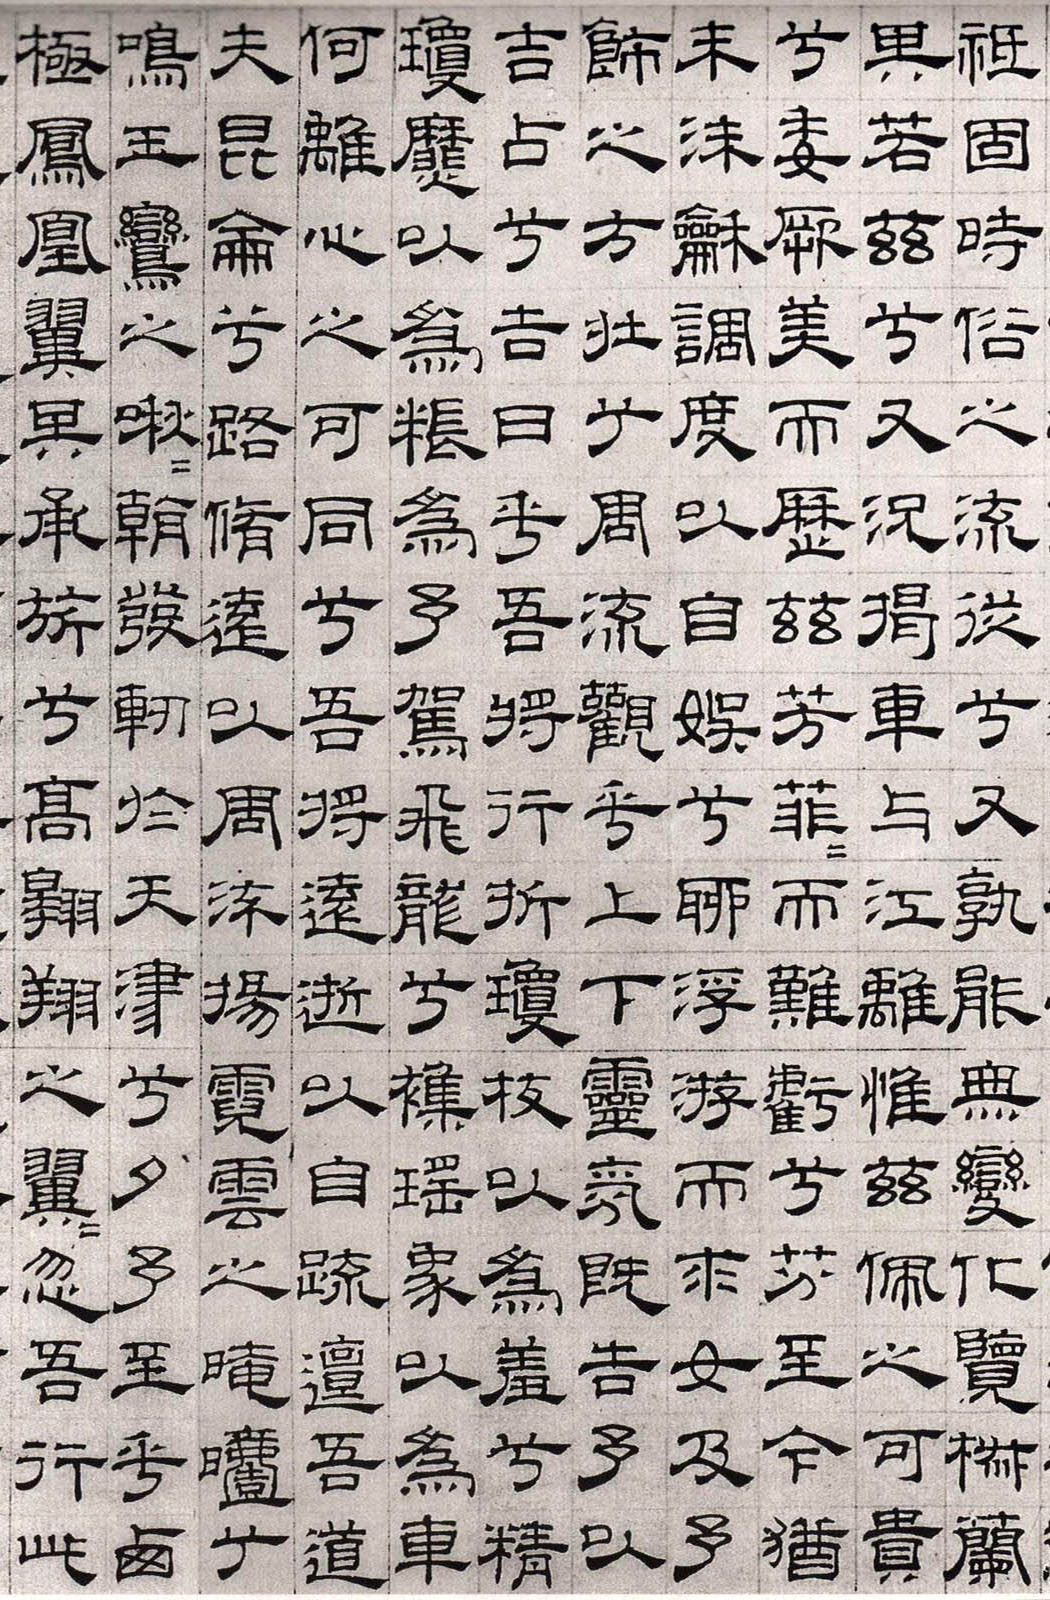 祗固時俗之流從兮又孰能無變化覽椒蘭
其若茲兮又況揭車与江離惟茲佩之可貴
兮委厥美而歷茲芳菲=而難虧兮芬至今猶
未沬龢調度以自娛兮聊浮游而求女及予
飾之方壯兮周流觀乎上下靈氛既告予以
吉占兮吉日乎吾將行折瓊枝以為羞兮精
瓊爢以為粻為予駕飛龍兮襍瑤象以為車
何離心之可同兮吾將遠逝以自疏邅吾道
夫昆侖兮路脩遠以周流揚霓雲之晻兮
鳴玉鸞之啾=朝發軔於天津兮夕予至乎西
極鳳凰翼其承旂兮高翱翔之翼=忽吾行此